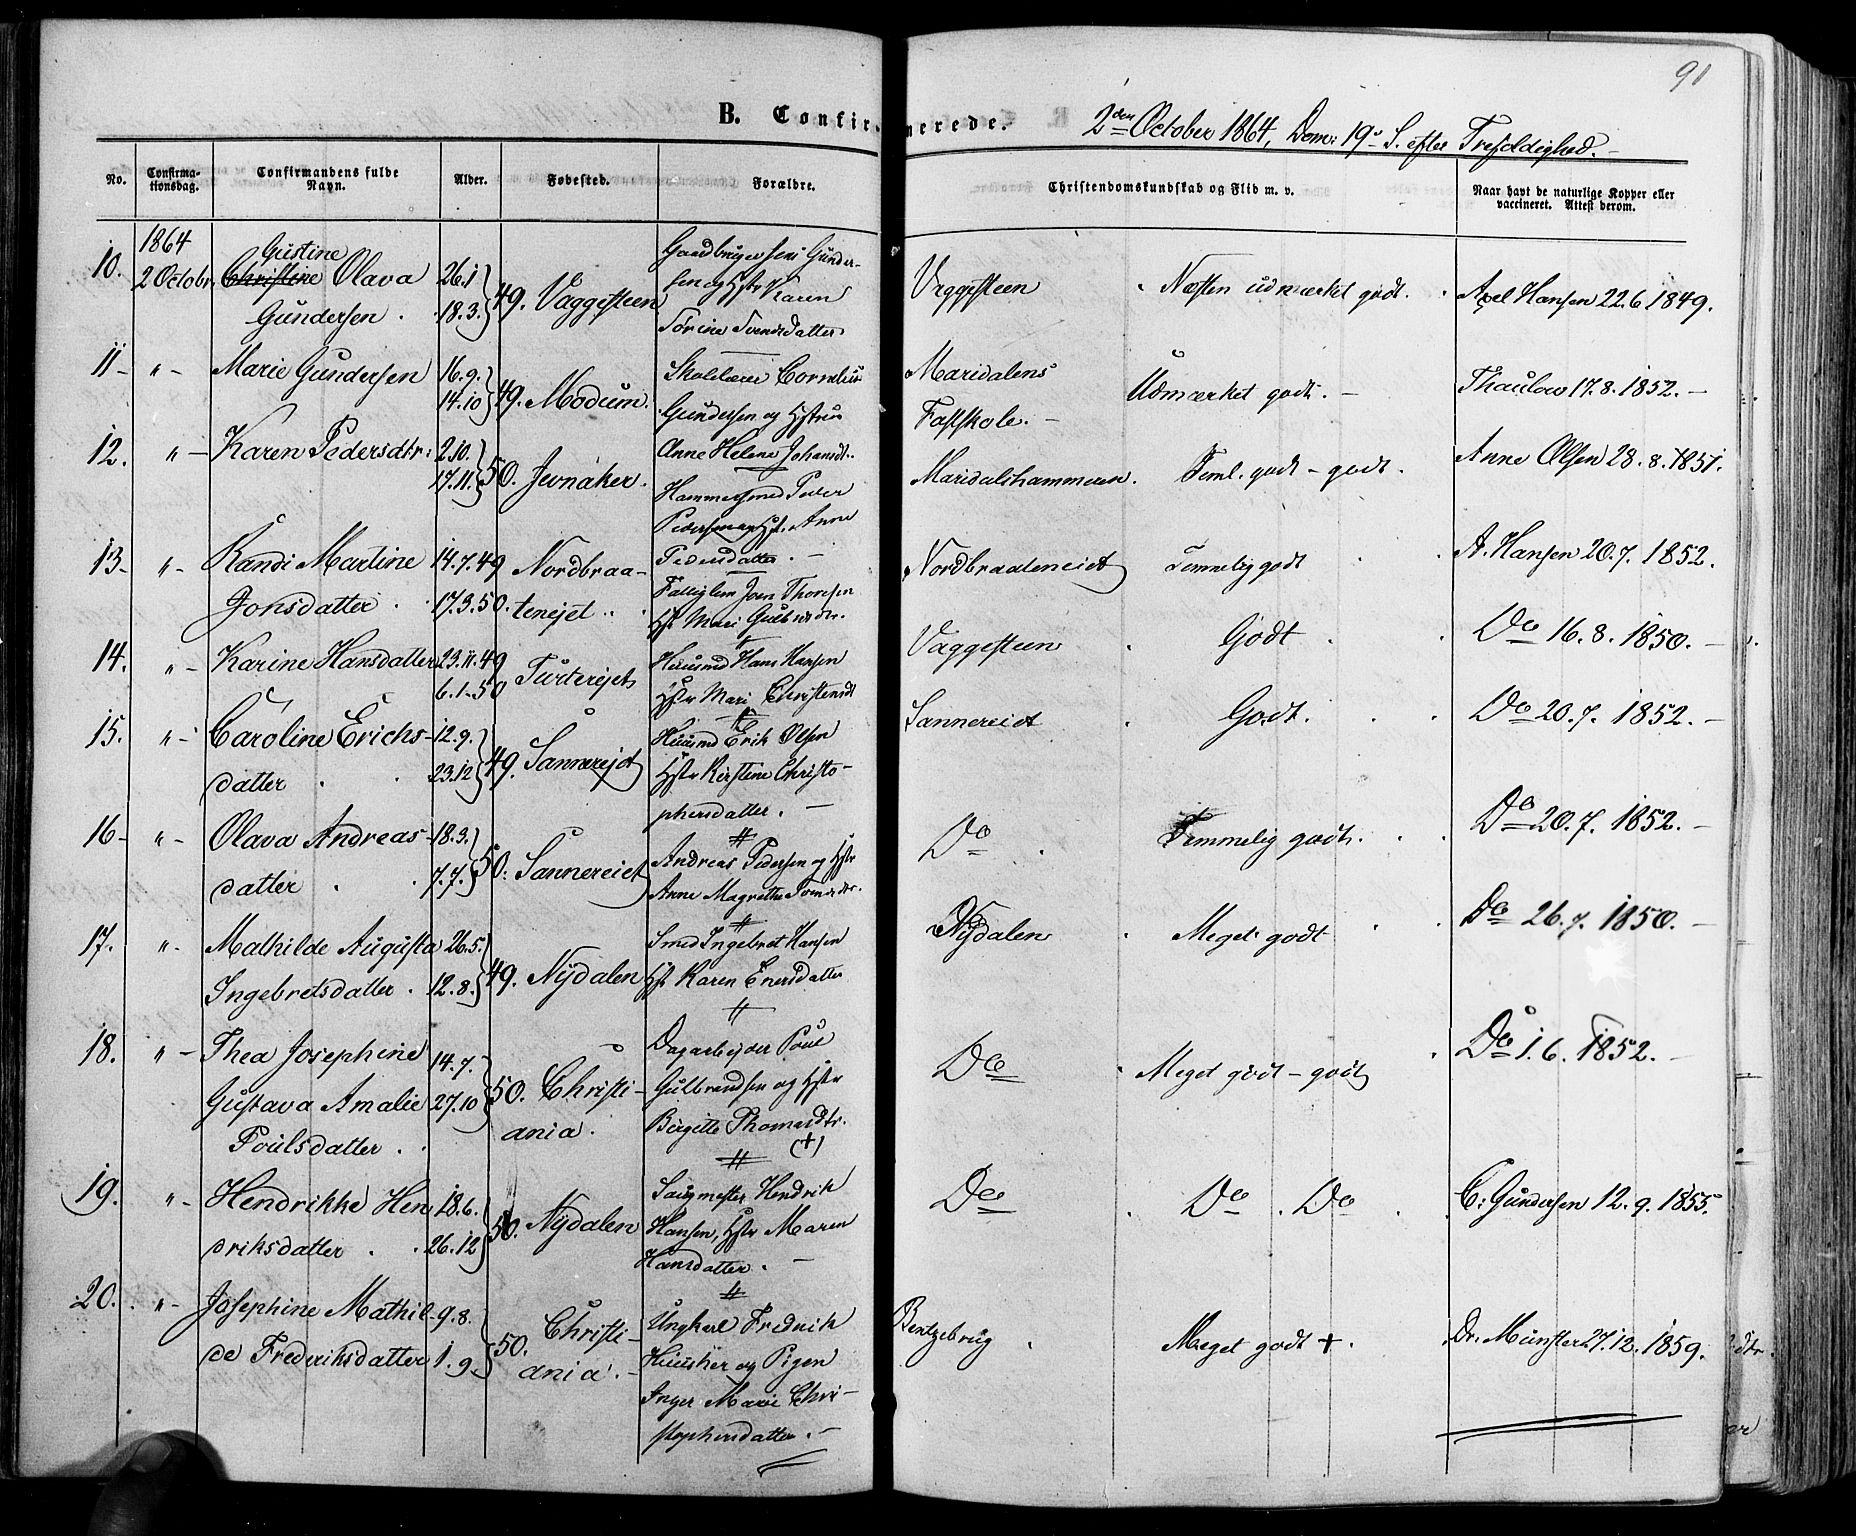 91
B. Confirmerede.
2den October 1864, Dom: 19 S. efter Trefoldighed.
No. Confirmationsdag. Confirmandens fulde Navn. Alder. Fødested. Forældre. Christendomskundskab og Flid m. v. Naar havt de naturlige Kopper eller vaccineret. Attest derom.
1864
10. 2 Octobr. Gustine
Christine Olava
Gundersen 26.1 18.3. 49. Vaggesteen
Gaardbruger Jens Gunder-
sen og Hstr Karen
Sørine Svendsdatter
Vaggesteen Næsten udmærket godt. Axel Hansen 22.6 1849.
11 - " - Marie Gundersen 16.9. 14.10 49. Modum.
Skolelærer Cornelius
Gundersen og Hstru
Anne Helene Johansdt.
Maridalens
Fastskole. - Udmærket godt. - Thaulow 17.8.1852. -
12. " - Karen Pedersdtr: 2.10. 17.11. 50. Jevnaker.
Hammersmed Peder
Pedersen og Hst. Anne
Pedersdatter. -
Maridalshammeren. Teml. godt - godt. Anne Olsen 28.8.1851.
13 - " - Randi Martine
Jonsdatter 14.7.49 17.3.50. Nordbraa-
tenejet
Fattiglem Joen Thoresen
Hst. Mari Gulbrdsdr.
Nordbraateneiet Temmelig godt A. Hansen 20.7. 1852.
14. " - Karine Hansdatter 23.11.49 6.1-50 Turterejet
Huusmd Hans Hansen
Hstr Mari Christensdt
Vaggesteen Godt Do 16.8. 1850. -
15. " - Caroline Erichs-
datter 12.9. 23.12 49. Sannerejet
Huusmd Erik Olsen
Hstr Kirstine Christo-
phersdatter. -
Sannereiet Godt. Do 20.7. 1852. -
16 - " - Olava Andreas-
datter 18.3. 7.7. 50. Sannereiet
Andreas Pedersen og Hstr
Anne Magrethe
Do Temmelig godt. Do 20.7. 1852. -
17. " - Mathilde Augusta
Ingebretsdatter. 26.5. 12.8. 49. Nydalen
Smed Ingebret Hansen
Hst. Karen Enersdatter
Nydalen Meget godt Do 26.7. 1850. -
18. " - Thea Josephine
Gustava Amalie
Poulsdatter 14.7. 27.10 50. Christi-
ania.
Dagarbejder Poul
Gulbrandsen og Hstr
Birgitte Thomasdtr.
(+)
Do Meget godt - godt Do 1.6. 1852. -
19. " - Hendrikke Hen
driksdatter 18.6. 26.12 50. Nydalen
Saugmester Hendrik
Hansen, Hstr Maren
Hansdatter. -
Do Do . Do C. Gundersen 12.9.1855.
20. " - Josephine Mathil-
de Fredriksdatter 9.8. 1.9. 50. Christi-
ania. -
Ungkarl Fredrik
og Pigen
Inger Marie Chri-
stophersdatter. -
Bentzebrug Meget godt + . Dr. Munster 27.12.1859.